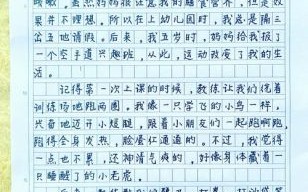 咳嗽，虽然妈妈很注意我的膳食营养，但是效
果并不理想。所以在上幼儿园时，我总是隔三
岔五地请假。后来，我五岁时，妈妈给我报了
一个空手道兴趣班，从此，运动改变了我的生
活。
记得第一次上课的时候，教练让我们绕着
训练场地跑两圈。我像一只学飞的小鸟一样，
兴奋地迈开小短腿，跟着小朋友们一起跑啊跑，
跑得全身发热，脸蛋红通通的。不过，我觉得
一点也不累，还神清气爽的，好像身体藏着一
只睡醒了的小老虎。